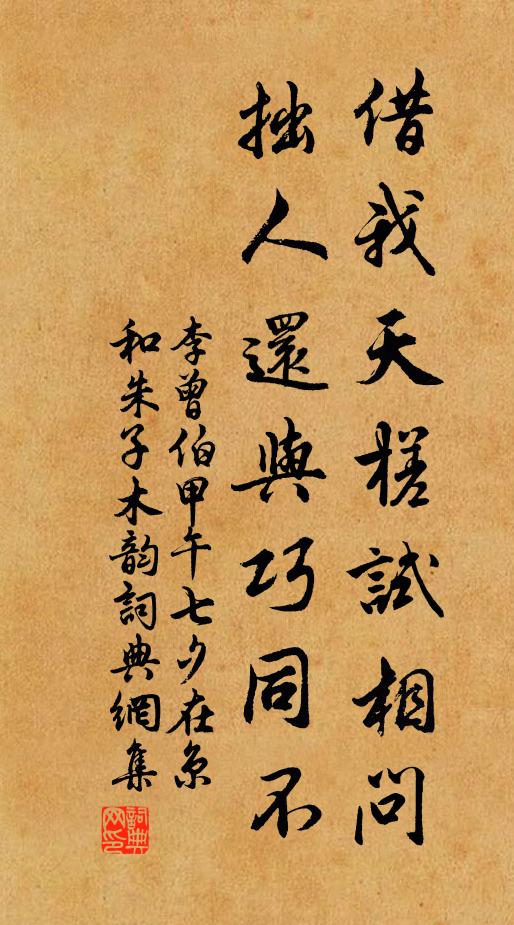 借我天槎試相問
拙人還與巧同不
李曾伯甲午七夕在京
和朱子木韵詞典網集
詞典网印